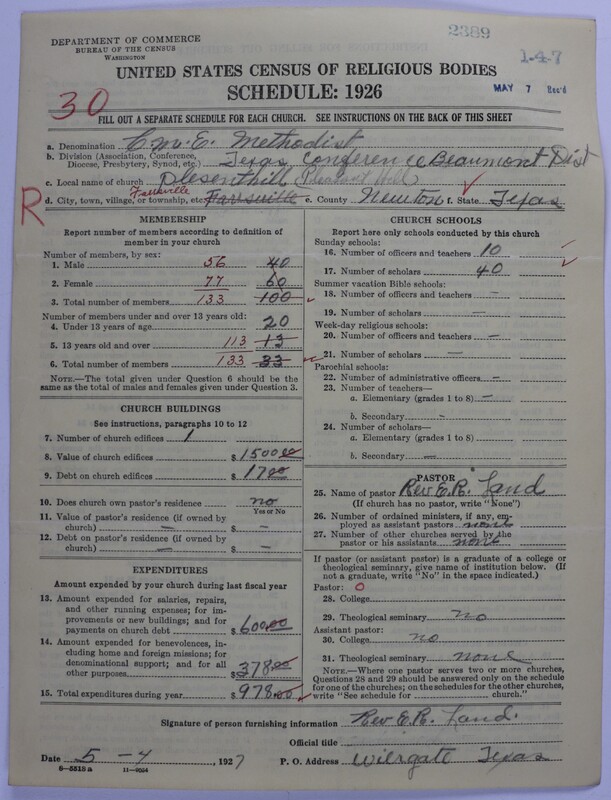 2389
DEPARTMENT OF COMMERCE
BUREAU OF THE CENSUS
WASHINGTON
1-4-7
UNITED STATES CENSUS OF RELIGIOUS BODIES
MAY 7 Rec'd
SCHEDULE: 1926
30
FILL OUT A SEPARATE SCHEDULE FOR EACH CHURCH. SEE INSTRUCTIONS ON THE BACK OF THIS SHEET
a. Denomination C.M.E. Methodist
b. Division (Association, Conference, Diocese, Presbytery, Synod, etc.) Texas Conference Beaumont Dist
c. Local name of church Plesenthill (Pleasant Hill)
R d. City, town, village, or township, etc. e. County Newton f. State Texas
MEMBERSHIP
Report number of members according to definition of
member in your church
Number of members, by sex:
1. Male 56 40
2. Female 77 60
3. Total number of members 133 100
Number of members under and over 13 years old:
4. Under 13 years of age 20
5. 13 years old and over 113 13
6. Total number of members 133 33
NOTE.—The total given under Question 6 should be the
same as the total of males and females given under Question 3.
CHURCH BUILDINGS
See instructions, paragraphs 10 to 12
7. Number of church edifices 1
8. Value of church edifices $ 1500.00
9. Debt on church edifices $ 17.00
10. Does church own pastor's residence no
Yes or No
11. Value of pastor's residence (if owned by
church) — $ —
12. Debt on pastor's residence (if owned by
church) — $ —
EXPENDITURES
Amount expended by your church during last fiscal year
13. Amount expended for salaries, repairs,
and other running expenses; for im-
provements or new buildings; and for
payments on church debt $ 600.00
14. Amount expended for benevolences, in-
cluding home and foreign missions; for
denominational support; and for all
other purposes $ 378.00
15. Total expenditures during year $ 978.00
CHURCH SCHOOLS
Report here only schools conducted by this church
Sunday schools:
16. Number of officers and teachers 10
17. Number of scholars 40
Summer vacation Bible schools:
18. Number of officers and teachers —
19. Number of scholars —
Week-day religious schools:
20. Number of officers and teachers —
21. Number of scholars —
Parochial schools:
22. Number of administrative officers —
23. Number of teachers—
a. Elementary (grades 1 to 8) —
b. Secondary -
24. Number of scholars—
a. Elementary (grades 1 to 8) —
b. Secondary —
PASTOR
25. Name of pastor Rev E.R. Land
(If church has no pastor, write "None")
26. Number of ordained ministers, if any, em-
ployed as assistant pastors none
27. Number of other churches served by the
pastor or his assistants none
If pastor (or assistant pastor) is a graduate of a college or
theological seminary, give name of institution below. (If
not a graduate, write "No" in the space indicated.)
Pastor: O
28. College
29. Theological seminary no
Assistant pastor:
30. College no
31. Theological seminary none
NOTE.—Where one pastor serves two or more churches,
Questions 28 and 29 should be answered only on the schedule
for one of the churches; on the schedules for the other churches,
write "See schedule for church."
Signature of person furnishing information Rev E.R. Land.
Official title
Date 5 - 4, 1927 P. O. Address Wiergate Texas
8-5518 a 11-9094